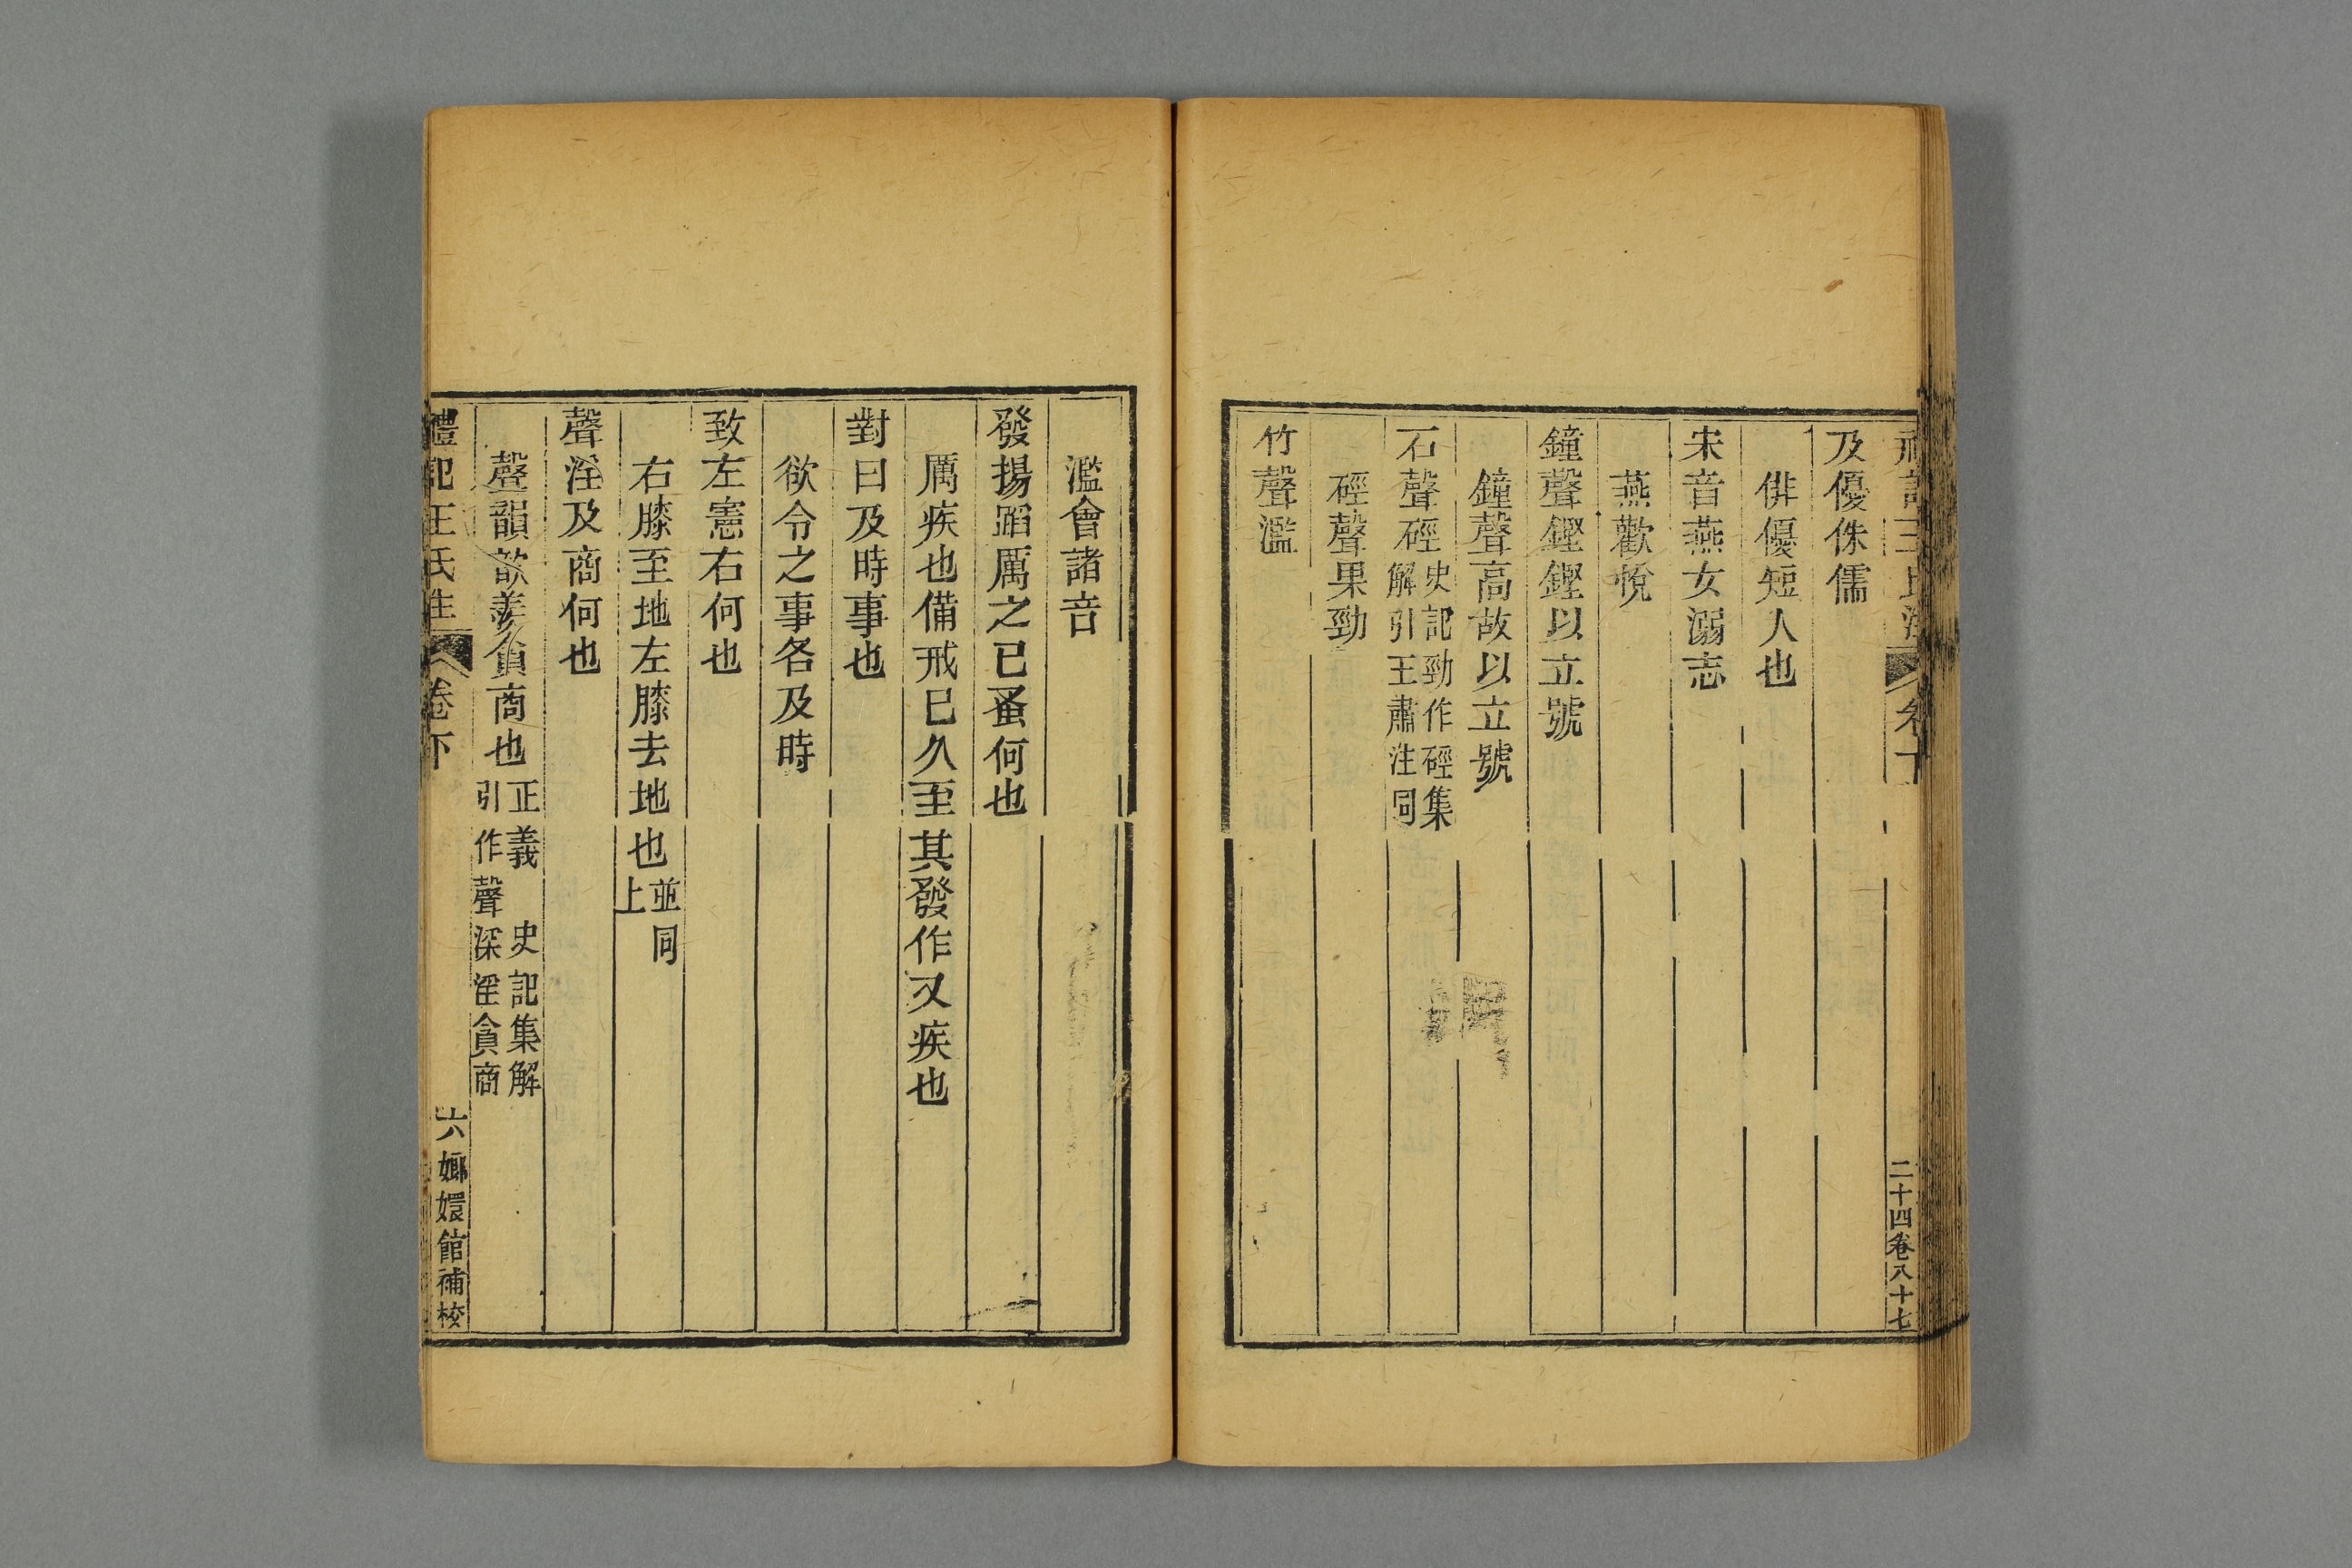 及優侏儒
俳優短人也
宋音燕女溺志
燕歡悅
鐘聲鏗鏗以立號
鐘聲高故以立號
石聲硜史記勁作硜集解引王肅注同
硜聲果勁
竹聲濫
二十四卷八十七
濫會諸音
發揚蹈厲之已蚤何也
厲疾也備戒已久至其發作又疾也
對曰及時事也
欲令之事各及時
致左憲右何也
右膝至地左膝去地也並同上
聲淫及商何也
聲韻歆羨貪商也正義 史記集解引作聲深淫貪商
禮記王氏注 卷下
六 嫏嬛館補校